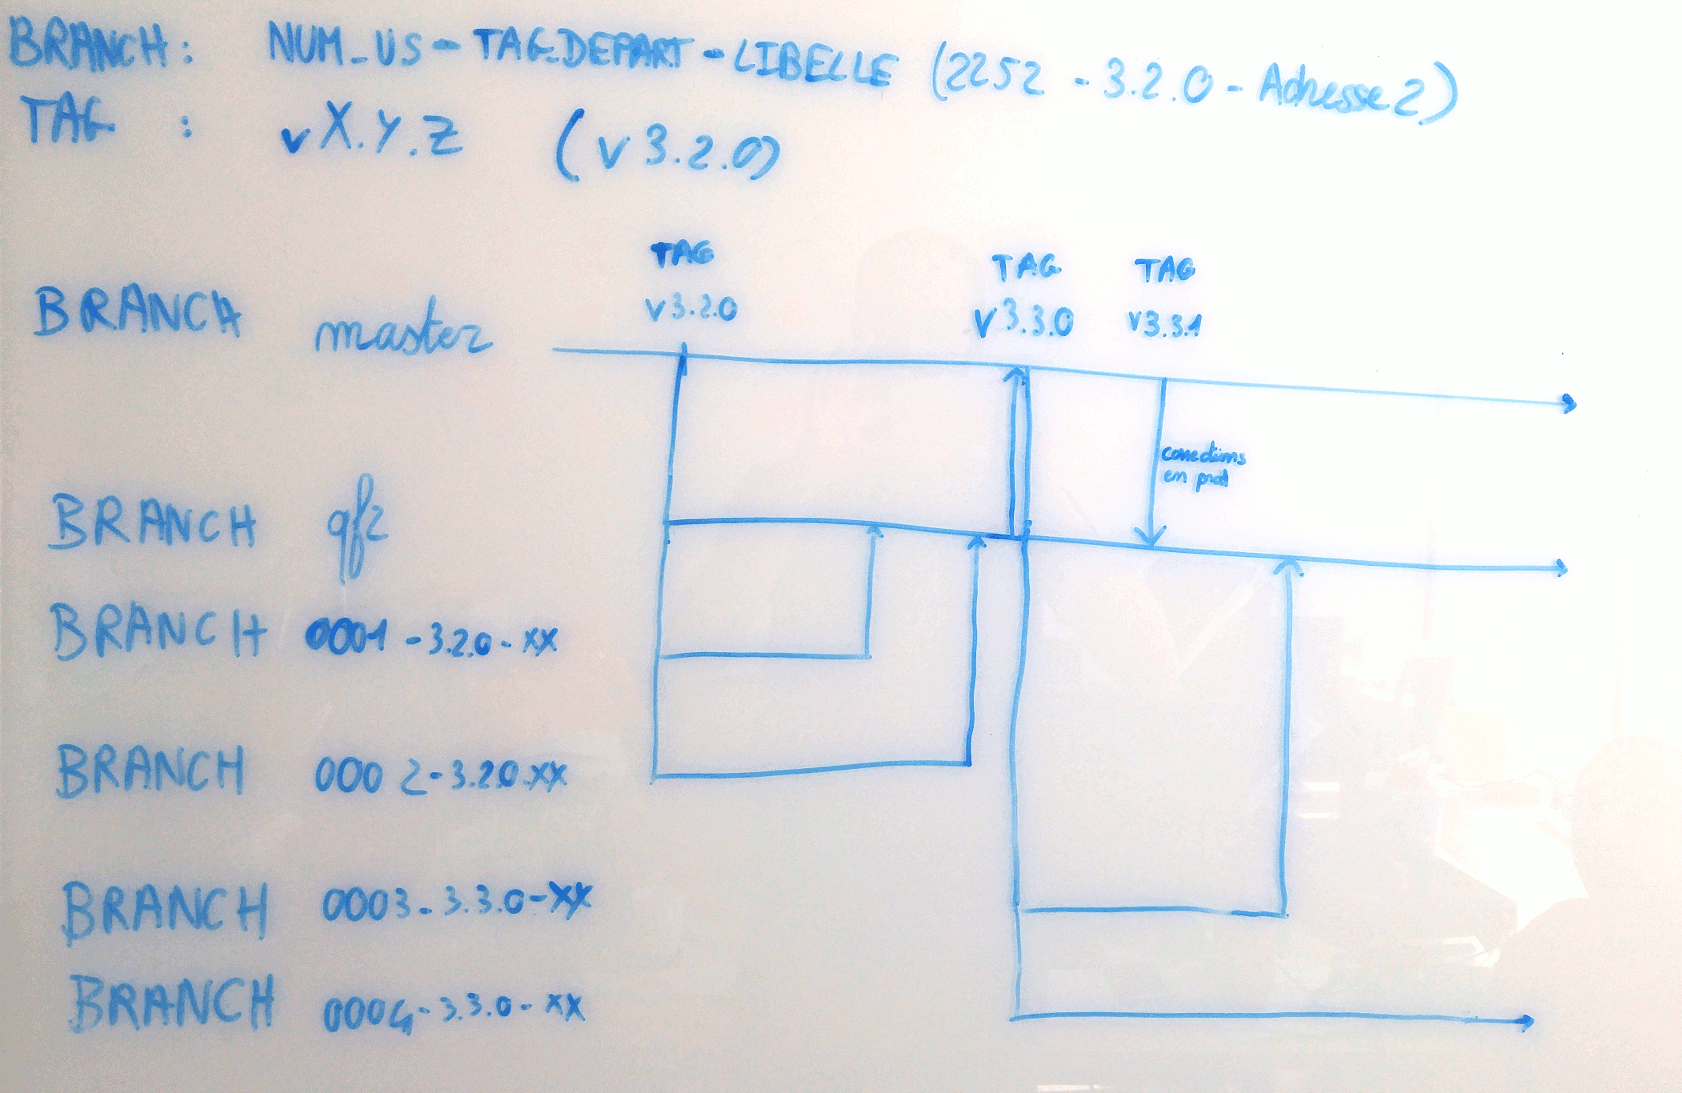 BRANCH: NUM_US - TAG_DEPART - LIBELLE (2252 - 3.2.0 - Adresse2)
TAG : vX.Y.Z (v3.2.0)
TAG TAG TAG
v3.2.0 v3.3.0 v3.3.1
BRANCH master
corrections
en prod
BRANCH
BRANCH 0001-3.2.0-xx
BRANCH 0002-3.2.0-xx
BRANCH 0003-3.3.0-xx
BRANCH 0004-3.3.0-xx